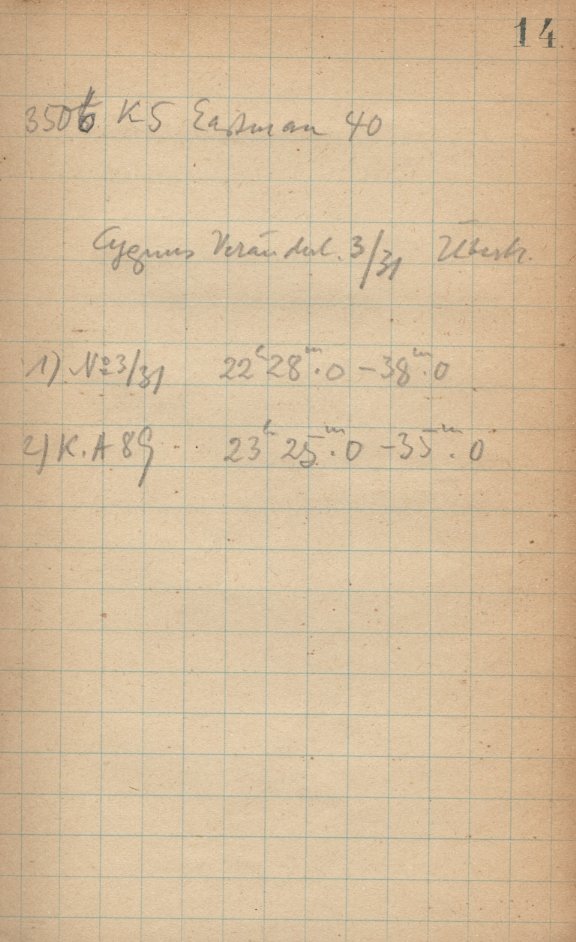 14
3506 K5 Eastman 40
Cygnus Veränderl. 3/31
1) No 3/31 22h 28m.0 – 38m.0
2) K.A 89 23h 25m.0 – 35m.0